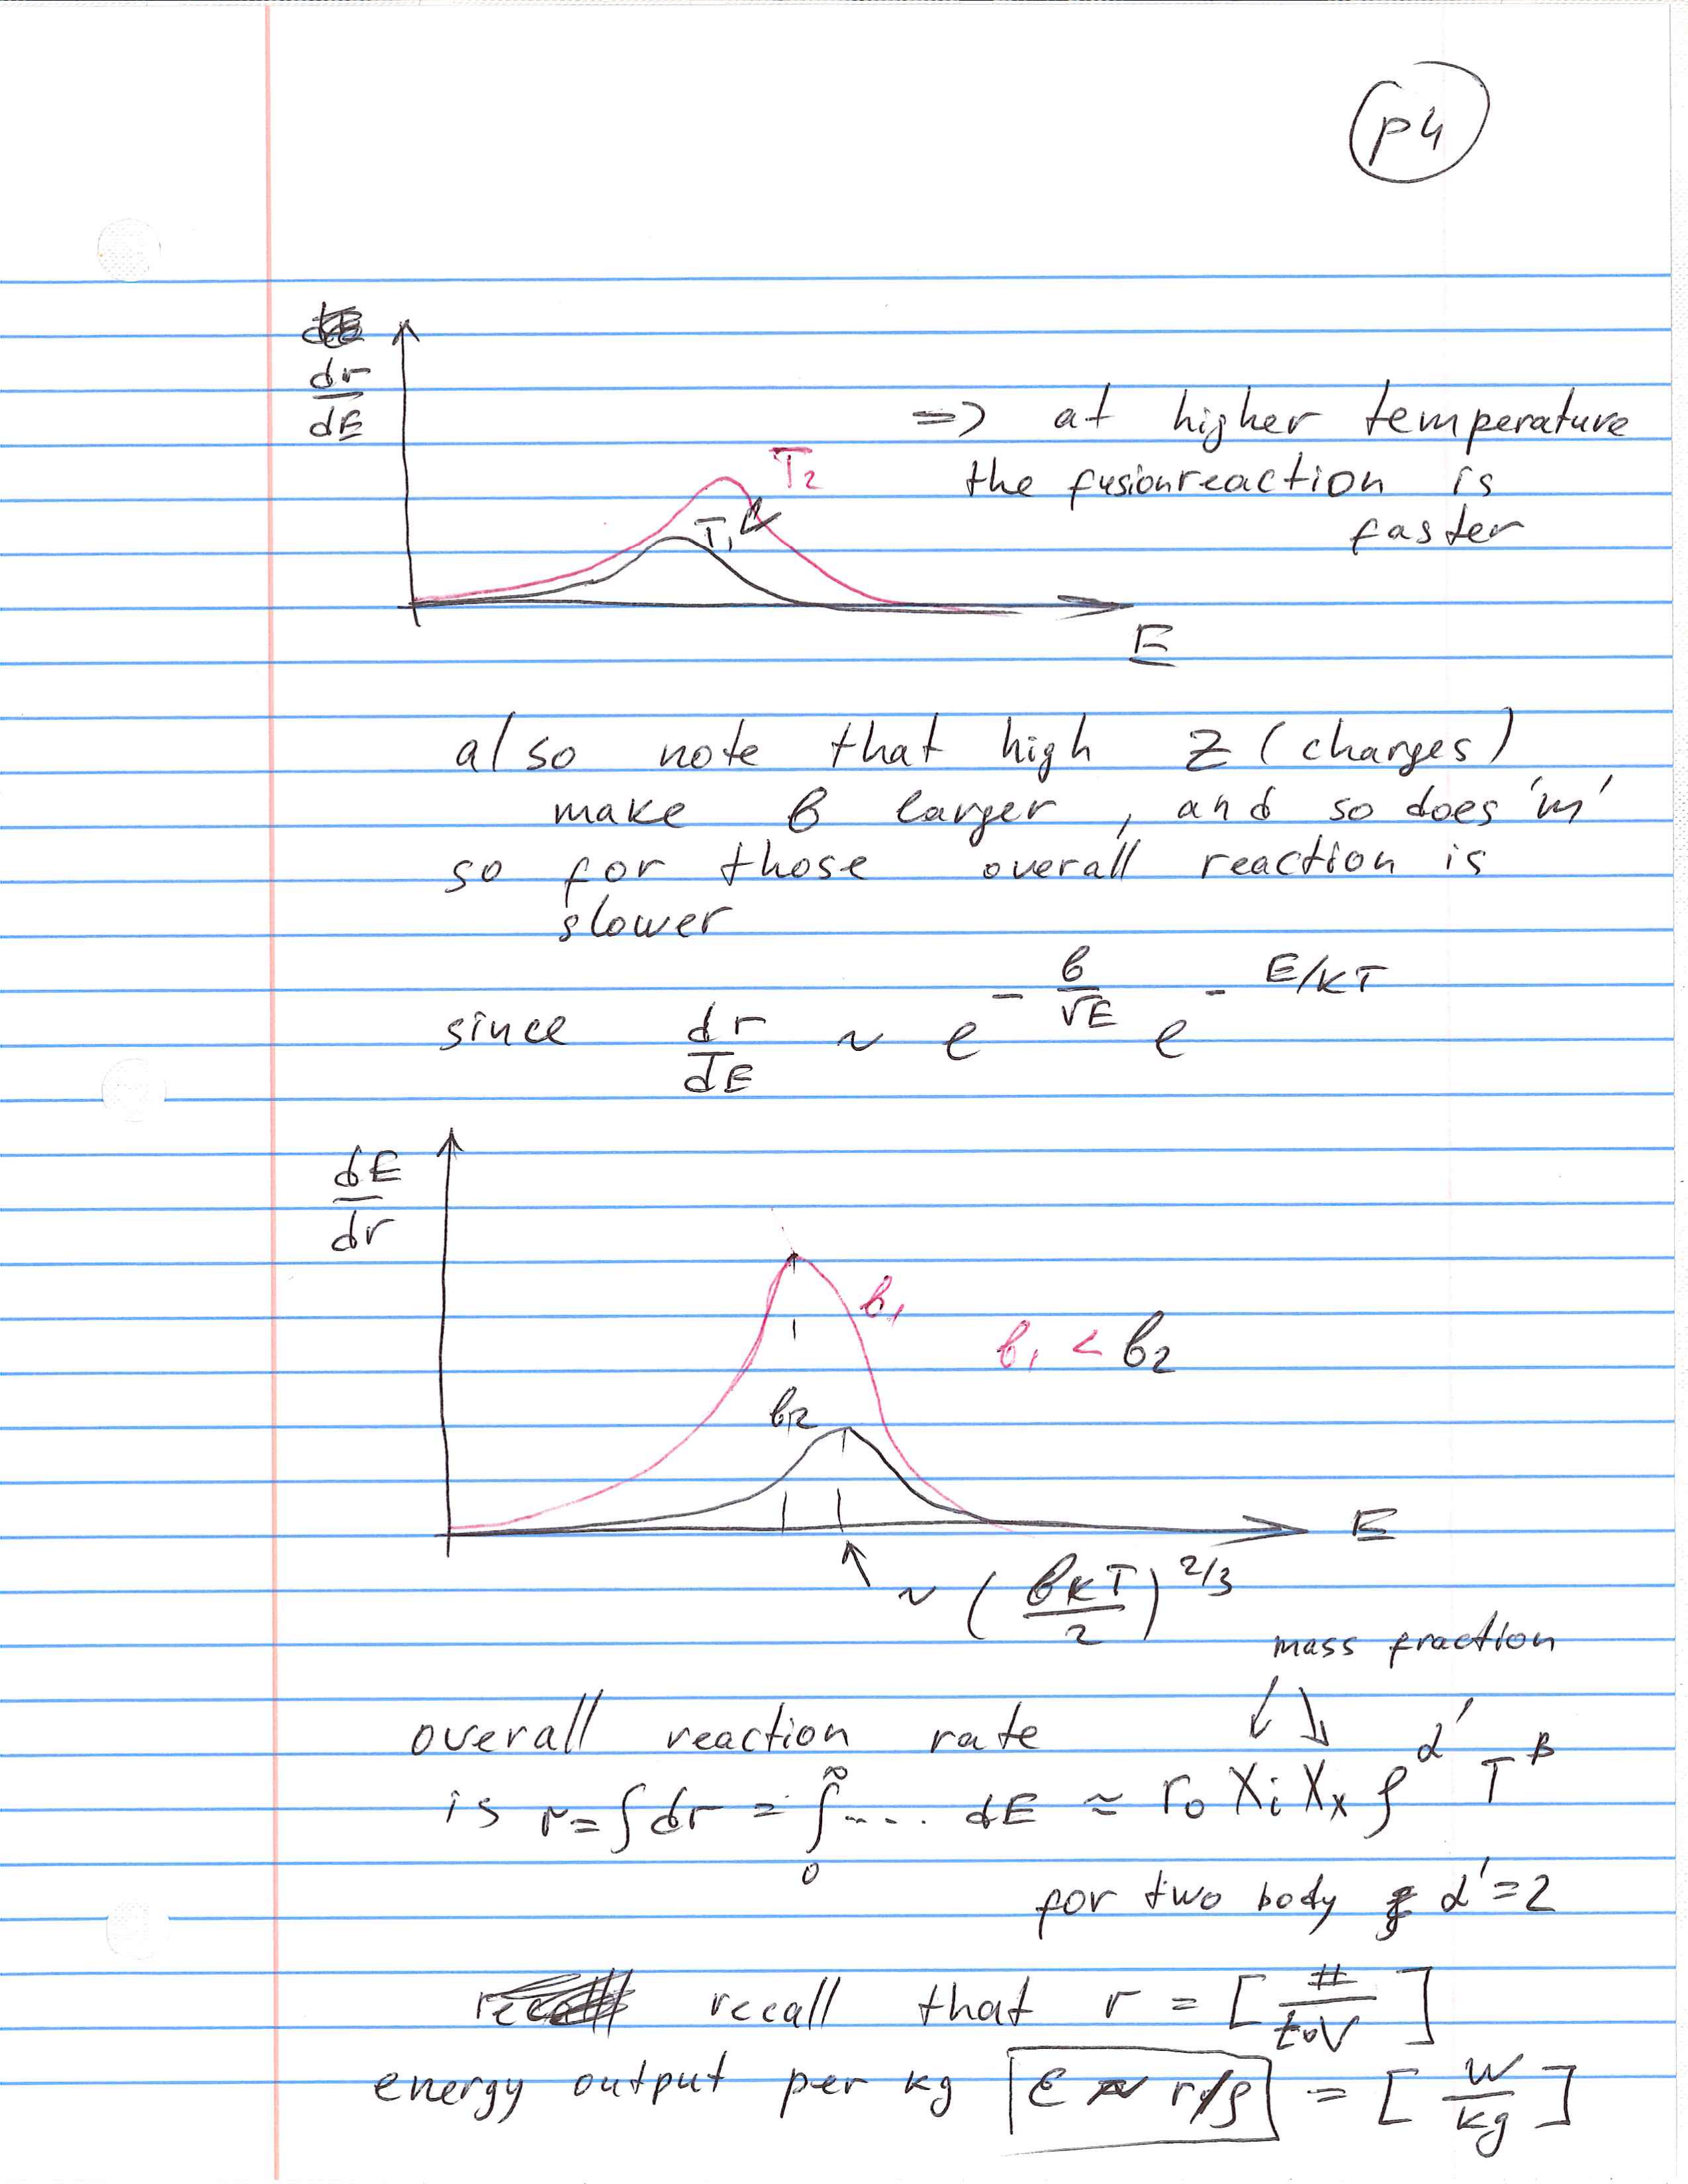 p4
dr/dE
T2
T1
E
=> at higher temperature
the fusionreaction is
faster
also note that high Z (charges)
make b larger, and so does 'm'
so for those overall reaction is
slower
since dr/dE ~ e^(-b/√E) e^(-E/kT)
dE/dr
b1
b1 < b2
b2
E
~ (bkT/2)^2/3
mass fraction
overall reaction rate
is r = ∫dr = ∫_0^∞ .... dE ≈ r0 Xi Xx ρ^α' T^β
for two body α'=2
recall that r = [#/t·V]
energy output per kg ε ~ r/ρ = [W/kg]